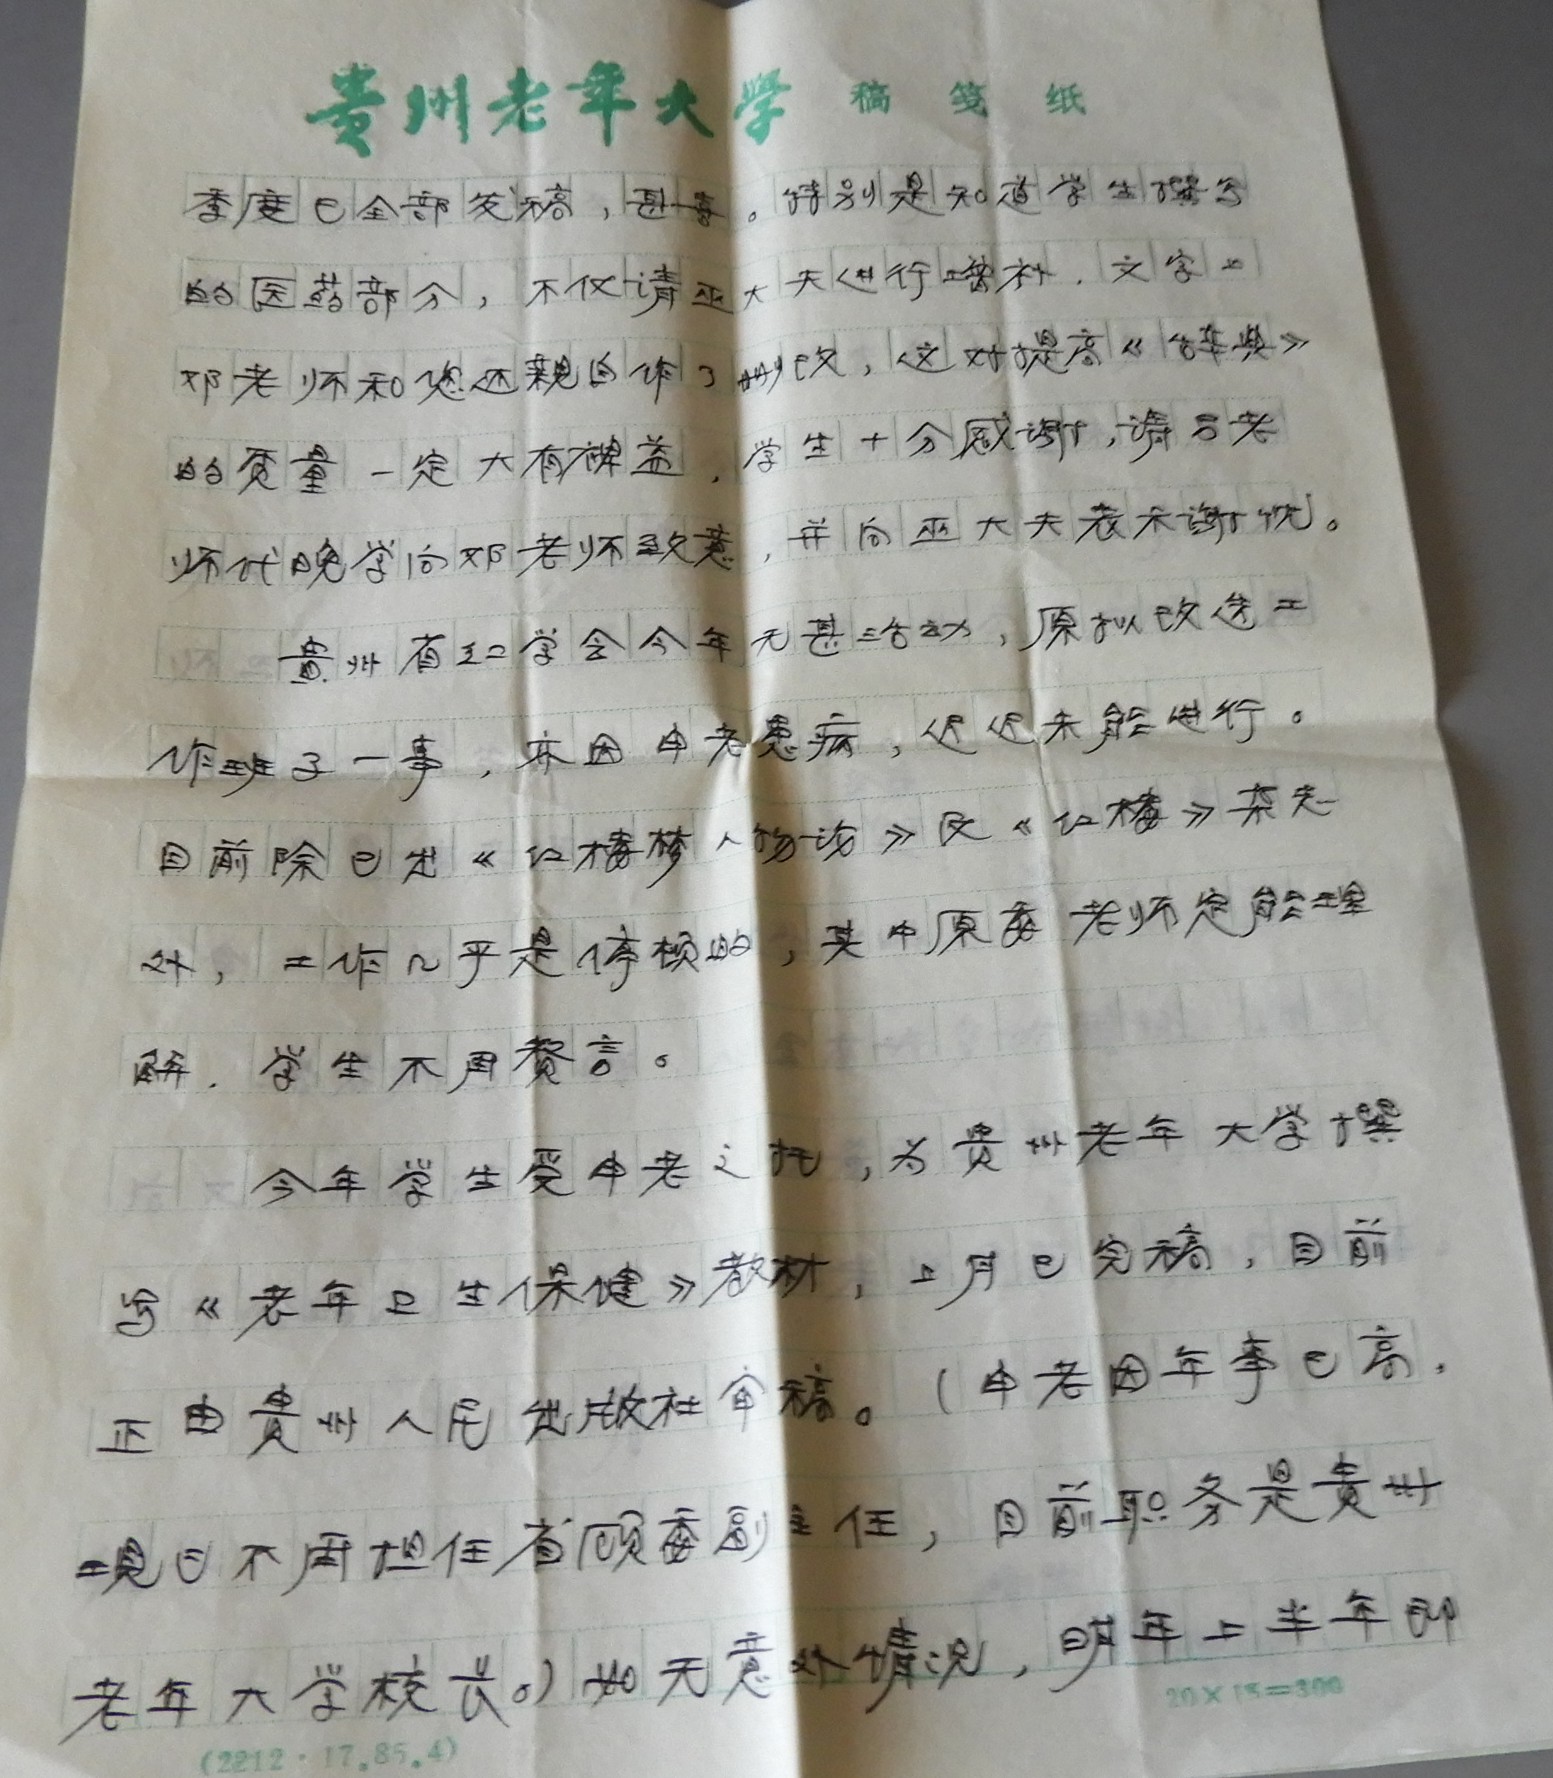 贵州老年大学 稿笺纸
季度已全部发稿，甚喜。特别是知道学生撰写
的医药部分，不仅请巫大夫进行增补，文字上
邓老师和您还亲自作了删改，这对提高《辞典》
的质量一定大有裨益，学生十分感谢，请吕老
师代晚学向邓老师致意，并向巫大夫表示谢忱。
贵州省红学会今年无甚活动，原拟改选工
作班子一事，亦因申老患病，迟迟未能进行。
目前除已出《红楼梦人物论》及《红楼》杂志
外，工作几乎是停顿的，其中原委老师定能理
解，学生不用赘言。
今年学生受申老之托，为贵州老年大学撰
写《老年卫生保健》教材，上月已完稿，目前
正由贵州人民出版社审稿。（申老因年事已高，
现已不用担任省顾委副主任，目前职务是贵州
老年大学校长。）如无意外情况，明年上半年即
20×15=300
(2212·17.85.4)